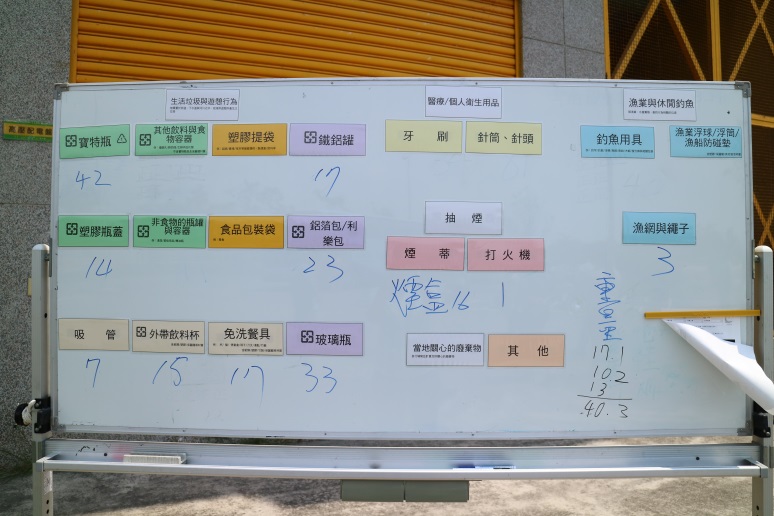 生活垃圾與遊憩行為
醫療/個人衛生用品
漁業與休閒釣魚
寶特瓶
其他飲料與食物容器
塑膠提袋
鐵鋁罐
牙刷
針筒、針頭
釣魚用具
漁業浮球/浮筒/漁船防碰墊
42
17
塑膠瓶蓋
非食物的瓶罐與容器
食品包裝袋
鋁箔包/利樂包
抽煙
漁網與繩子
煙蒂
打火機
14
23
3
煙盒16
1
重量
吸管
外帶飲料杯
免洗餐具
玻璃瓶
當地關心的廢棄物
其他
7
15
17
33
17.1
10.2
13
40.3